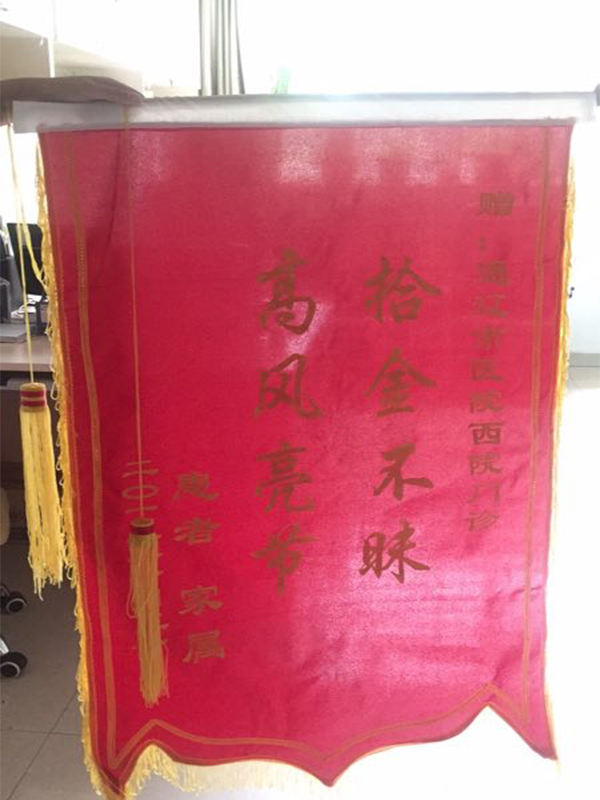 赠：通辽市医院西院门诊
拾金不昧
高风亮节
患者 家属
二〇一